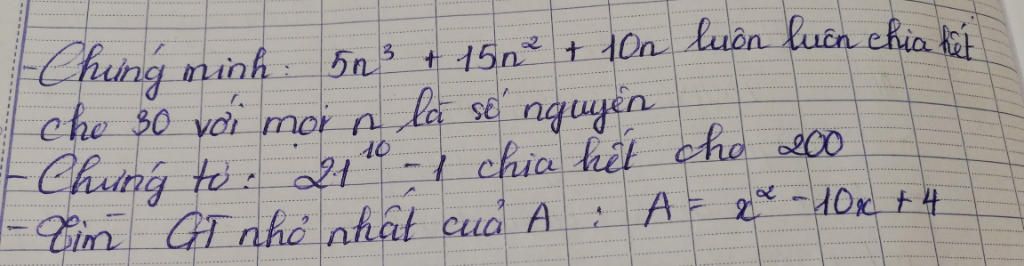 - Chứng minh: 5n³ + 15n² + 10n luôn luôn chia hết
cho 30 với mọi n là số nguyên
- Chứng tỏ: 21¹⁰ - 1 chia hết cho 200
- Tìm GT nhỏ nhất của A : A = x² - 10x + 4